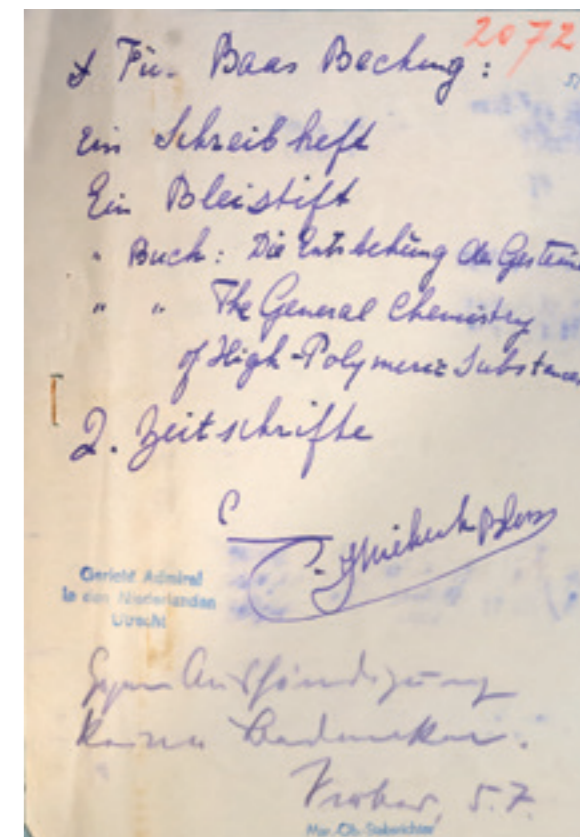 2072
Für Baas Becking:
Ein Schreibheft
Ein Bleistift
" Buch: Die Entstehung der Gestein
" " The General Chemistry
of High-Polymeric Substance
2. Zeitschrifte
Gericht Admiral
in den Niederlanden
Utrecht
Gegen Aushändigung
keine Bedenken.
5.7.
Mar. Ob. Stabsrichter